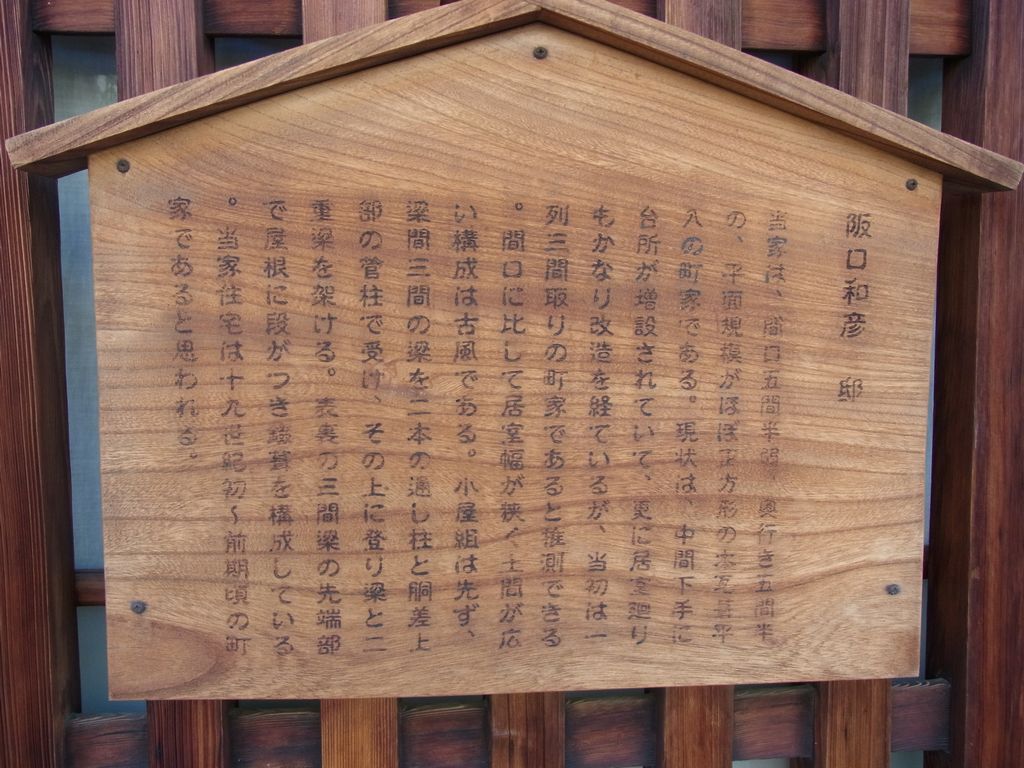 阪口和彦 邸
当家は、間口五間半弱、奥行き五間半
の、平面規模がほぼ正方形の本瓦葺平
入の町家である。現状は、中間下手に
台所が増設されていて、更に居室廻り
もかなり改造を経ているが、当初は一
列三間取りの町家であると推測できる
。間口に比して居室幅が狭く土間が広
い構成は古風である。小屋組は先ず、
梁間三間の梁を二本の通し柱と胴差上
部の管柱で受け、その上に登り梁と二
重梁を架ける。表裏の三間梁の先端部
で屋根に段がつき錣葺を構成している
。当家住宅は十九世紀初～前期頃の町
家であると思われる。